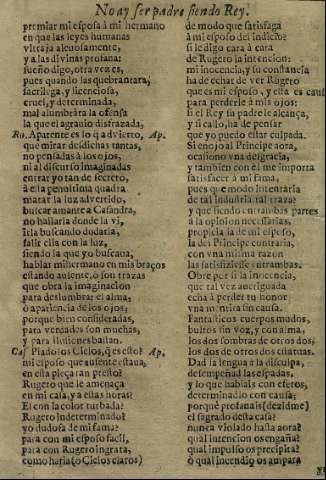 No ay ser padre siendo Rey.
premiar mi esposa à mi hermano
en que las leyes humanas
vltraja aleuosamente,
y a las diuinas profana:
sueño digo, otra vez es,
pues quando las quebrantara,
sacrilega, y licenciosa,
cruel, y determinada,
mal alumbrâra la ofensa
la que el agrauio disfrazada.
Ro. Aparente es lo q̃ aduierto, Ap.
que mirar desdichas tantas,
no pensadas à los ojos,
ni al discurso imaginadas
entrar yo tan de secreto,
à esta penultima quadra
matar la luz aduertido,
buscar amante a Casandra,
no hallarla donde la vi,
irla buscando dudarla,
salir ella con la luz,
siendo la que yo buscaua,
hablar mi hermano en mis braços
estando ausente, ò son trazas
que obra la imaginacion
para deslumbrar el alma,
ò apariencia de los ojos;
porque bien consideradas,
para verdades son muchas,
y para ilusiones bastan.
Cas. Piadosos Cielos, q̃ es esto? Ap.
mi esposo que ausente estaua,
en esta pieça tan presto?
Rugero que le amenaça
en mi casa, y a estas horas?
El con la color turbada?
Rugero indeterminado?
yo dudosa de mi fama?
para con mi esposo facil,
para con Rugero ingrata,
como haria (ò Cielos claros)
de modo que satisfaga
à mi esposo del indicio?
si le digo cara à cara
de Rugero la intencion:
mi inocencia, y su constancia
ha de echar de ver Rugero
que es mi esposo, y esta es causa
para perderle à mis ojos:
si el Rey su padre le alcança,
y si callo, ha de pensar
que yo puedo estar culpada.
Si enojo al Principe aora,
ocasiono vna desgracia,
y tambien con él me importa
satisfacer à mi fama,
pues que modo intentaria
de tal industria tal traza?
y que siendo en trambas partes
à la opinion necessarias,
propicia la de mi esposo,
la del Principe contraria,
con vna misma razon
las satisfiziesse entrambas.
Obre por si la inocencia,
que tal vez aueriguada
echa à perder tu honor
vna mentira sin causa.
Fantasticos cuerpos mudos,
bultos sin voz, y con alma,
los dos sombras de otros dos,
los dos de otros dos estatuas.
Dad la lengua à la disculpa,
desempeñad las espadas,
y lo que hablais con efetos,
determinadlo con causa;
porquè profanais (dezidme)
el sagrado desta casa?
nunca violado hasta aora?
qual intencion os engaña?
qual impulso os precipita?
ò qual incendio os ampara